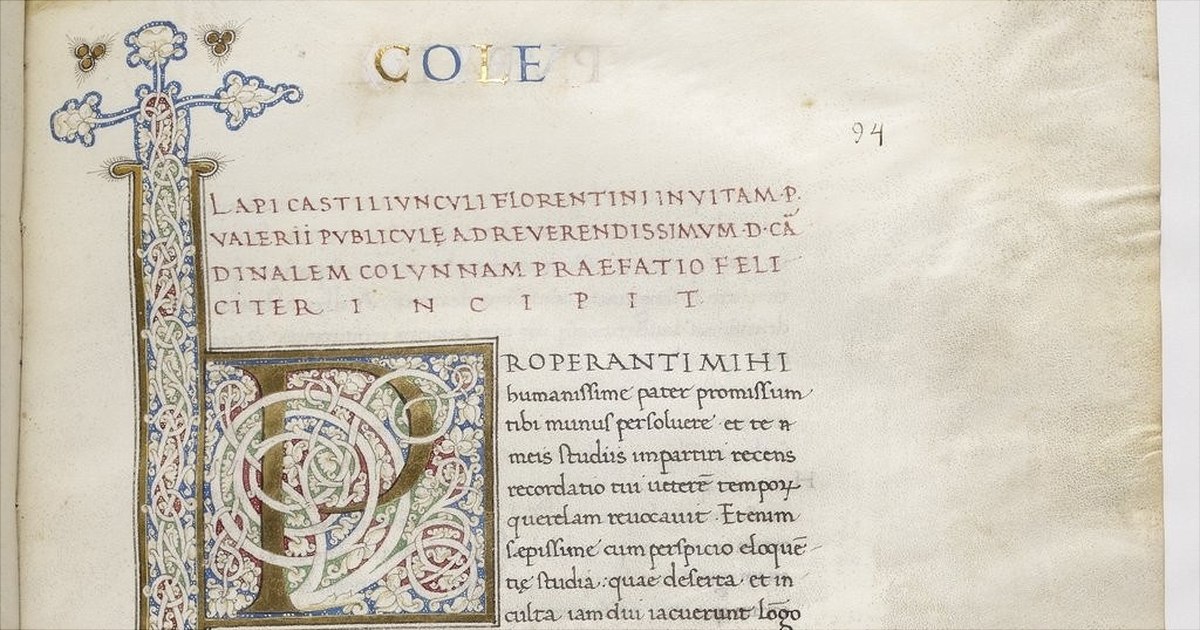 COLE
94
LAPI CASTILIVNCVLI FLORENTINI IN VITAM · P.
VALERII PVBLICVLĘ AD REVERENDISSIMVM · D · CĀ
DINALEM COLVNNAM PRAEFATIO FELI
CITER INCIPIT.
PROPERANTI MIHI
humanissime pater promissum
tibi munus persoluere et te a
meis studiis impartiri recens
recordatio tui ueterē tempoꝝ
querelam reuocauit. Etenim
sæpissime cum perspicio eloquē
tię studia: quae deserta et in
culta iam diu iacuerunt